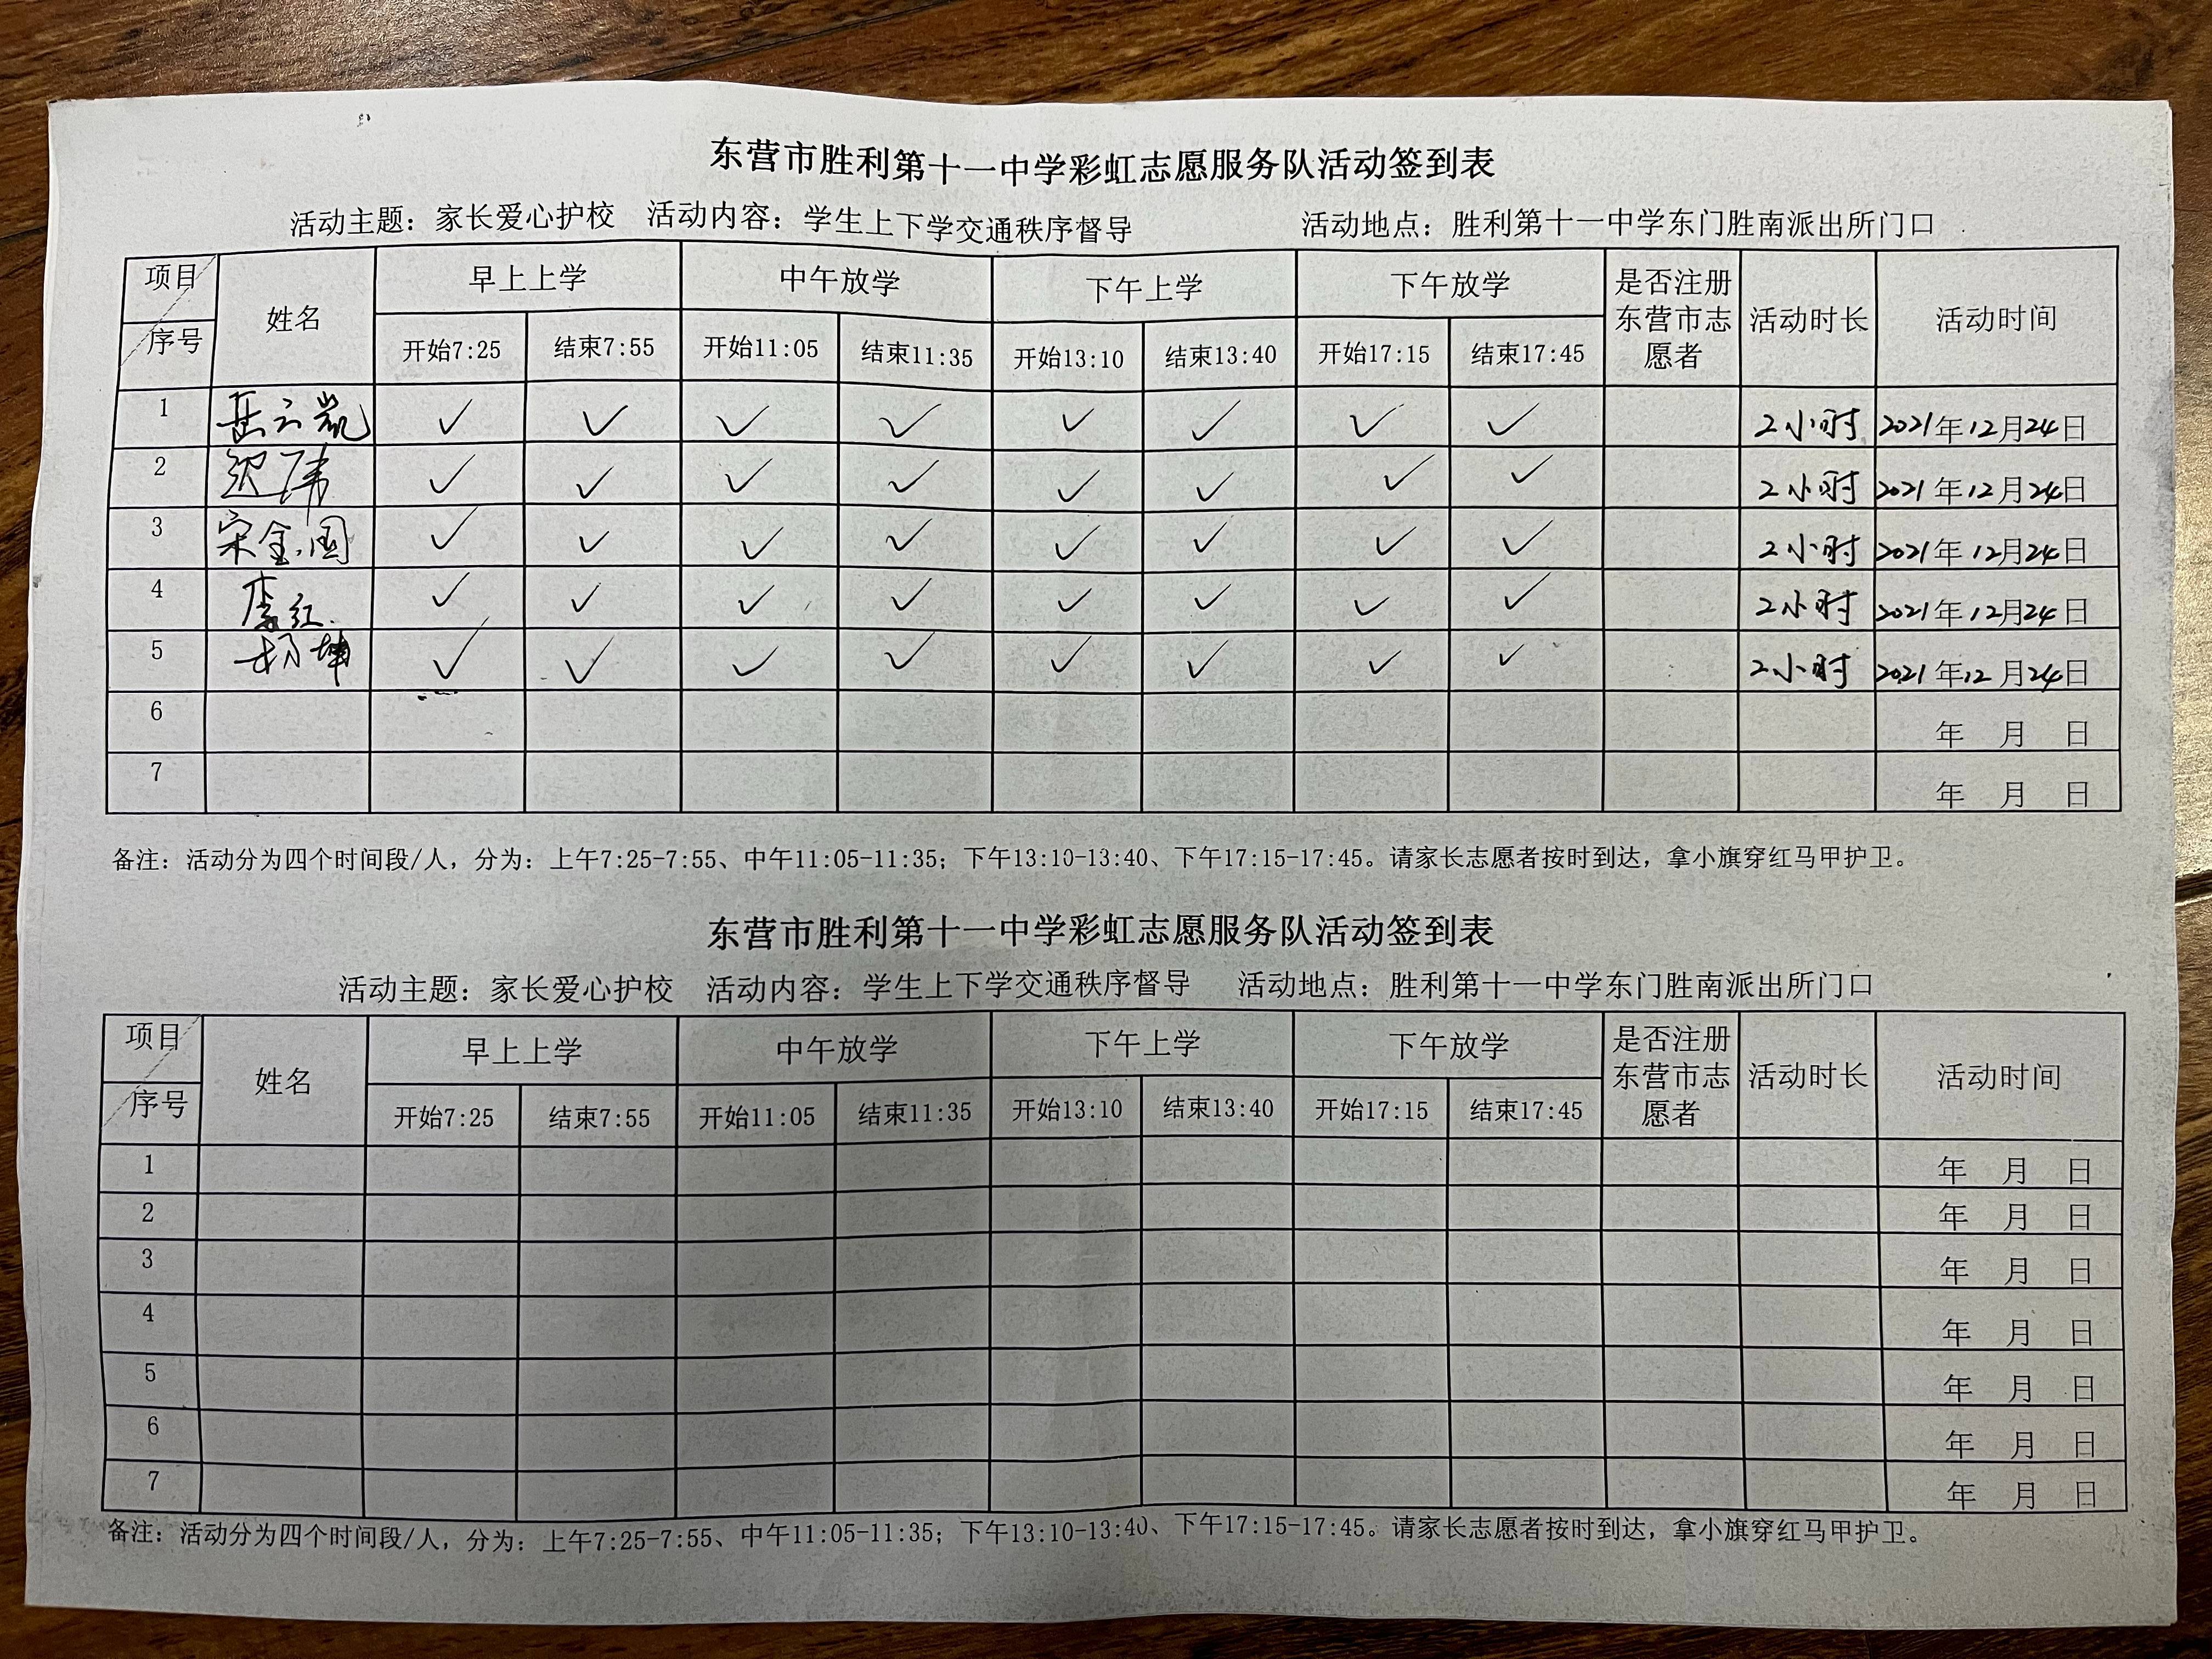 东营市胜利第十一中学彩虹志愿服务队活动签到表
活动主题：家长爱心护校 活动内容：学生上下学交通秩序督导 活动地点：胜利第十一中学东门胜南派出所门口
项目 姓名 早上上学 中午放学 下午上学 下午放学 是否注册东营市志愿者 活动时长 活动时间
序号 开始7:25 结束7:55 开始11:05 结束11:35 开始13:10 结束13:40 开始17:15 结束17:45
1 岳云凯 ✓ ✓ ✓ ✓ ✓ ✓ ✓ ✓ 2小时 2021年12月24日
2 ✓ ✓ ✓ ✓ ✓ ✓ ✓ ✓ 2小时 2021年12月24日
3 宋金国 ✓ ✓ ✓ ✓ ✓ ✓ ✓ ✓ 2小时 2021年12月24日
4 李红 ✓ ✓ ✓ ✓ ✓ ✓ ✓ ✓ 2小时 2021年12月24日
5 杨坤 ✓ ✓ ✓ ✓ ✓ ✓ ✓ ✓ 2小时 2021年12月24日
6 年 月 日
7 年 月 日
备注：活动分为四个时间段/人，分为：上午7:25-7:55、中午11:05-11:35；下午13:10-13:40、下午17:15-17:45。请家长志愿者按时到达，拿小旗穿红马甲护卫。
东营市胜利第十一中学彩虹志愿服务队活动签到表
活动主题：家长爱心护校 活动内容：学生上下学交通秩序督导 活动地点：胜利第十一中学东门胜南派出所门口
项目 姓名 早上上学 中午放学 下午上学 下午放学 是否注册东营市志愿者 活动时长 活动时间
序号 开始7:25 结束7:55 开始11:05 结束11:35 开始13:10 结束13:40 开始17:15 结束17:45
1 年 月 日
2 年 月 日
3 年 月 日
4 年 月 日
5 年 月 日
6 年 月 日
7 年 月 日
备注：活动分为四个时间段/人，分为：上午7:25-7:55、中午11:05-11:35；下午13:10-13:40、下午17:15-17:45。请家长志愿者按时到达，拿小旗穿红马甲护卫。